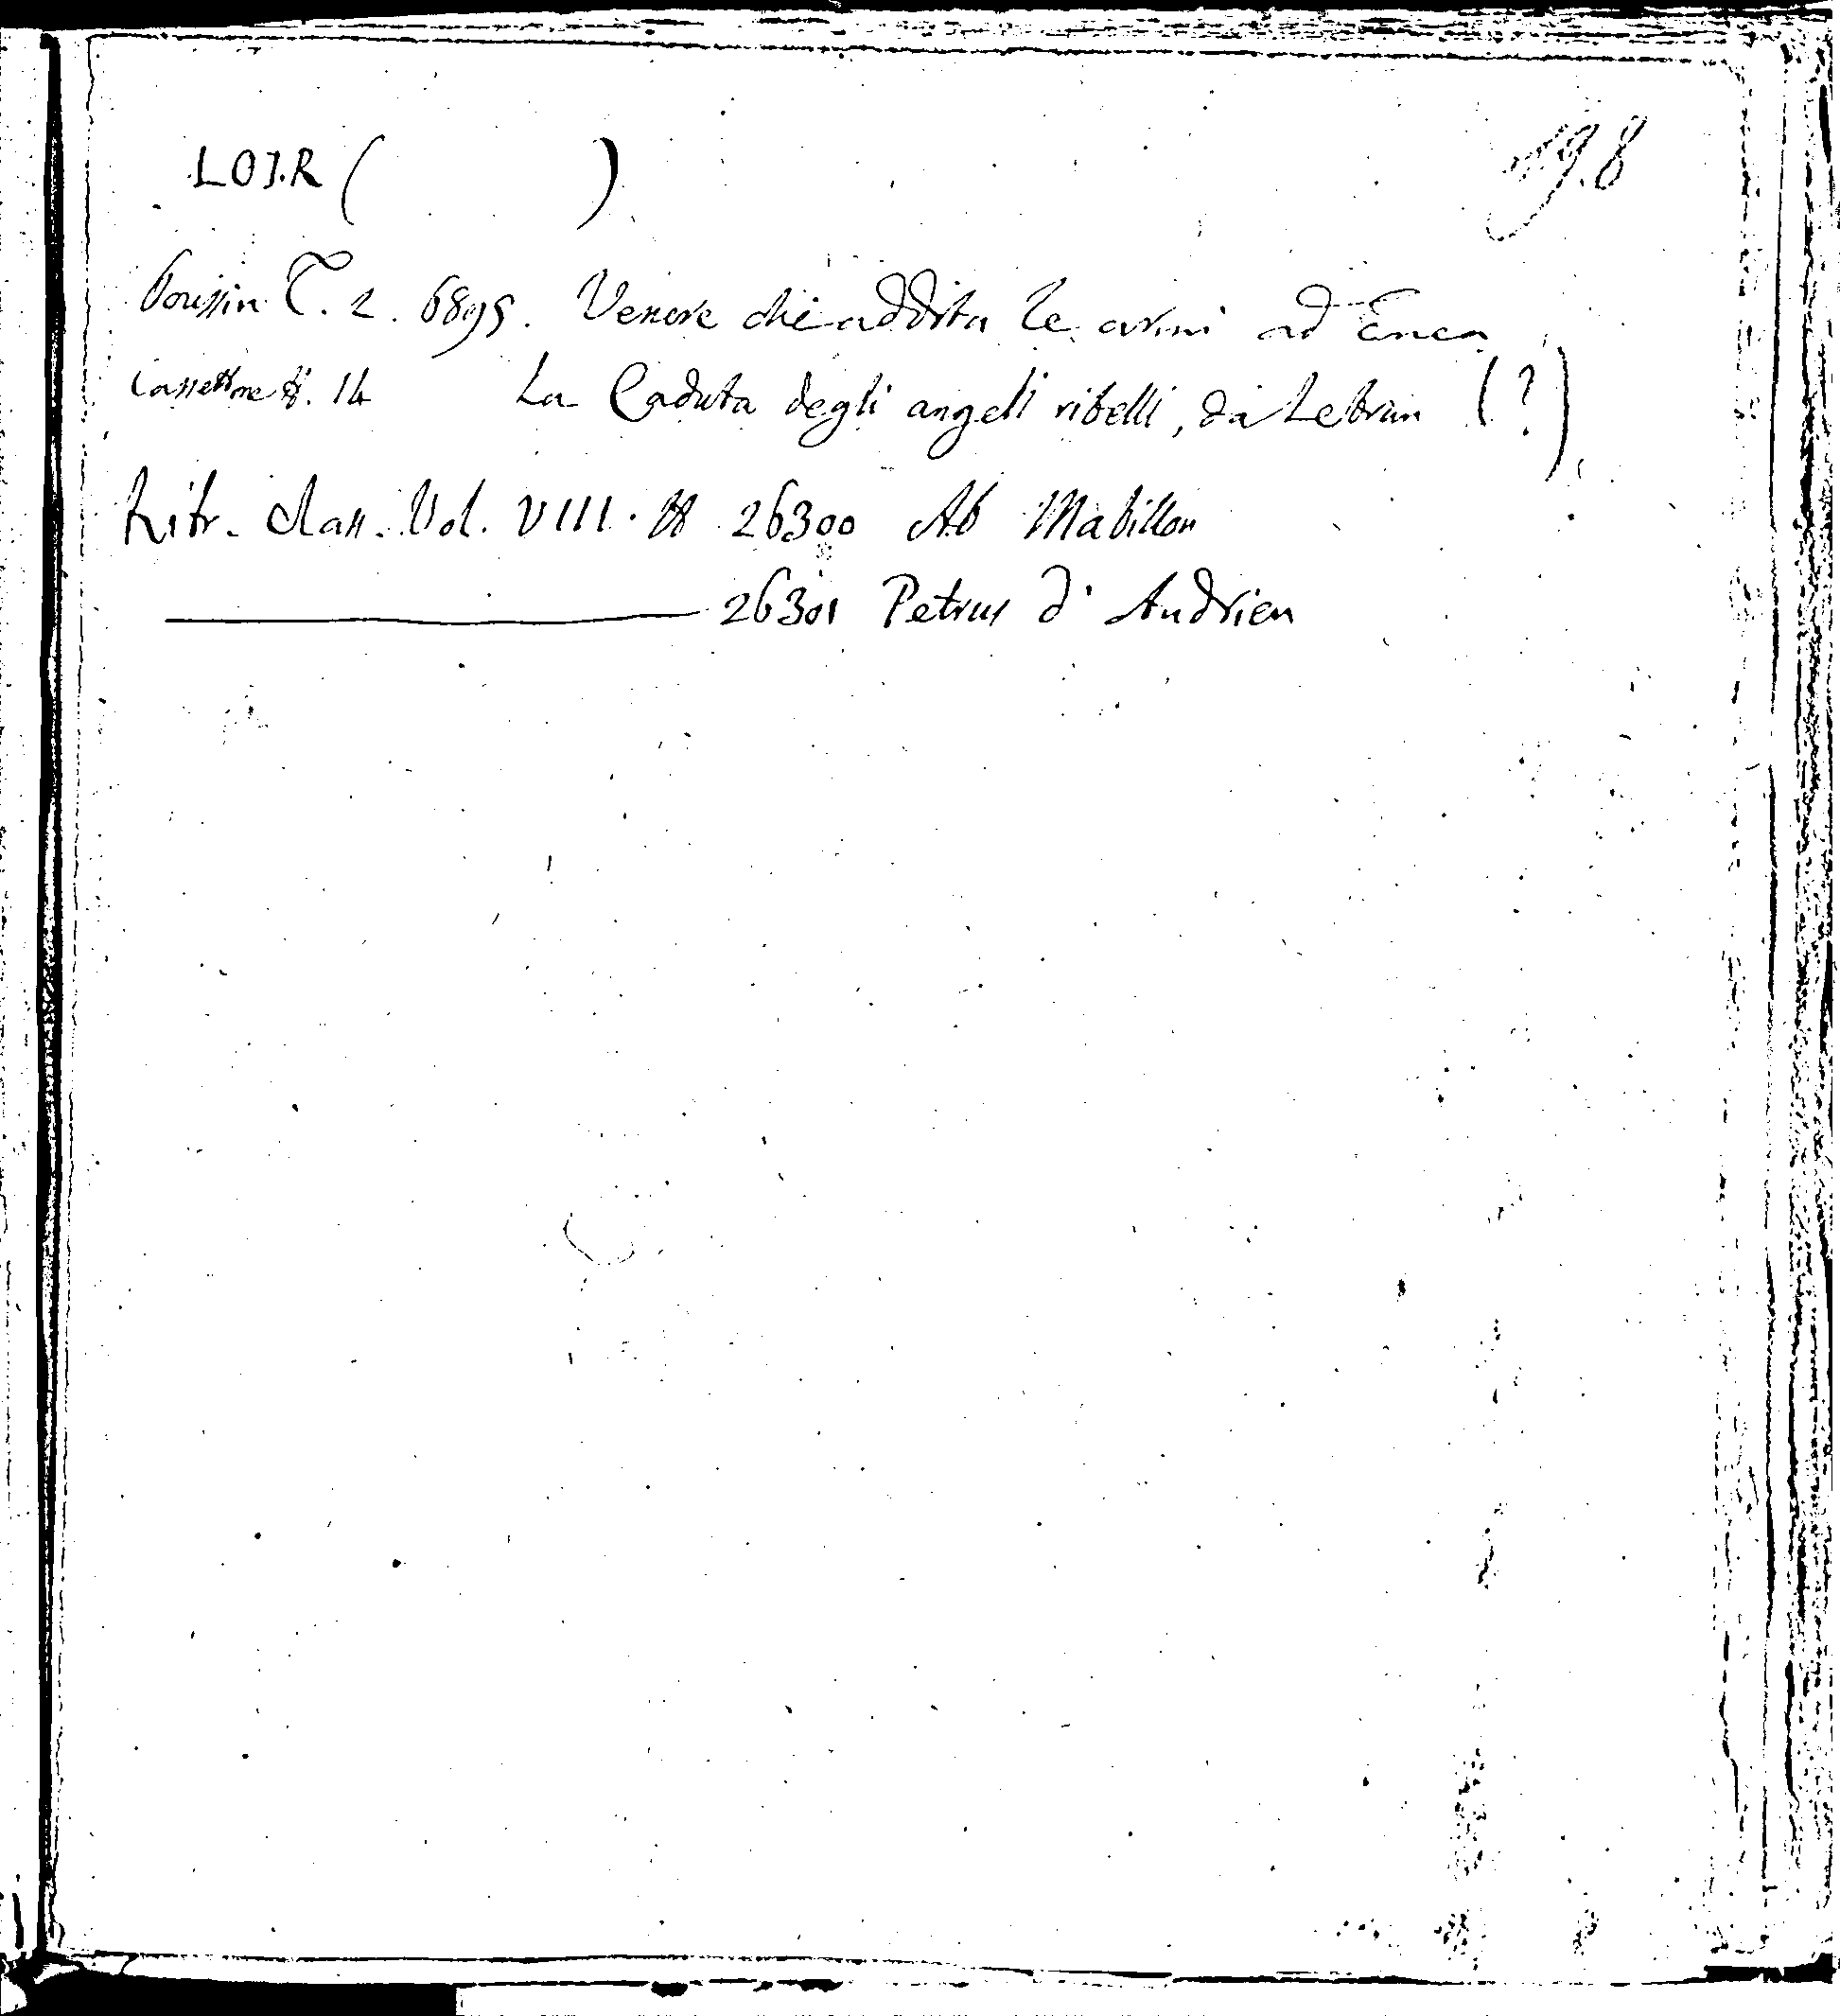 LOIR ( ) 198
Poussin T. 2. 6895. Venere che addita le armi ad Enea
Cassettone N. 14 La Caduta degli angeli ribelli, da Lebrun (?)
Ritr. Class. Vol. VIII. N 26300 Ab Mabillon
26301 Petrus d' Andrieu